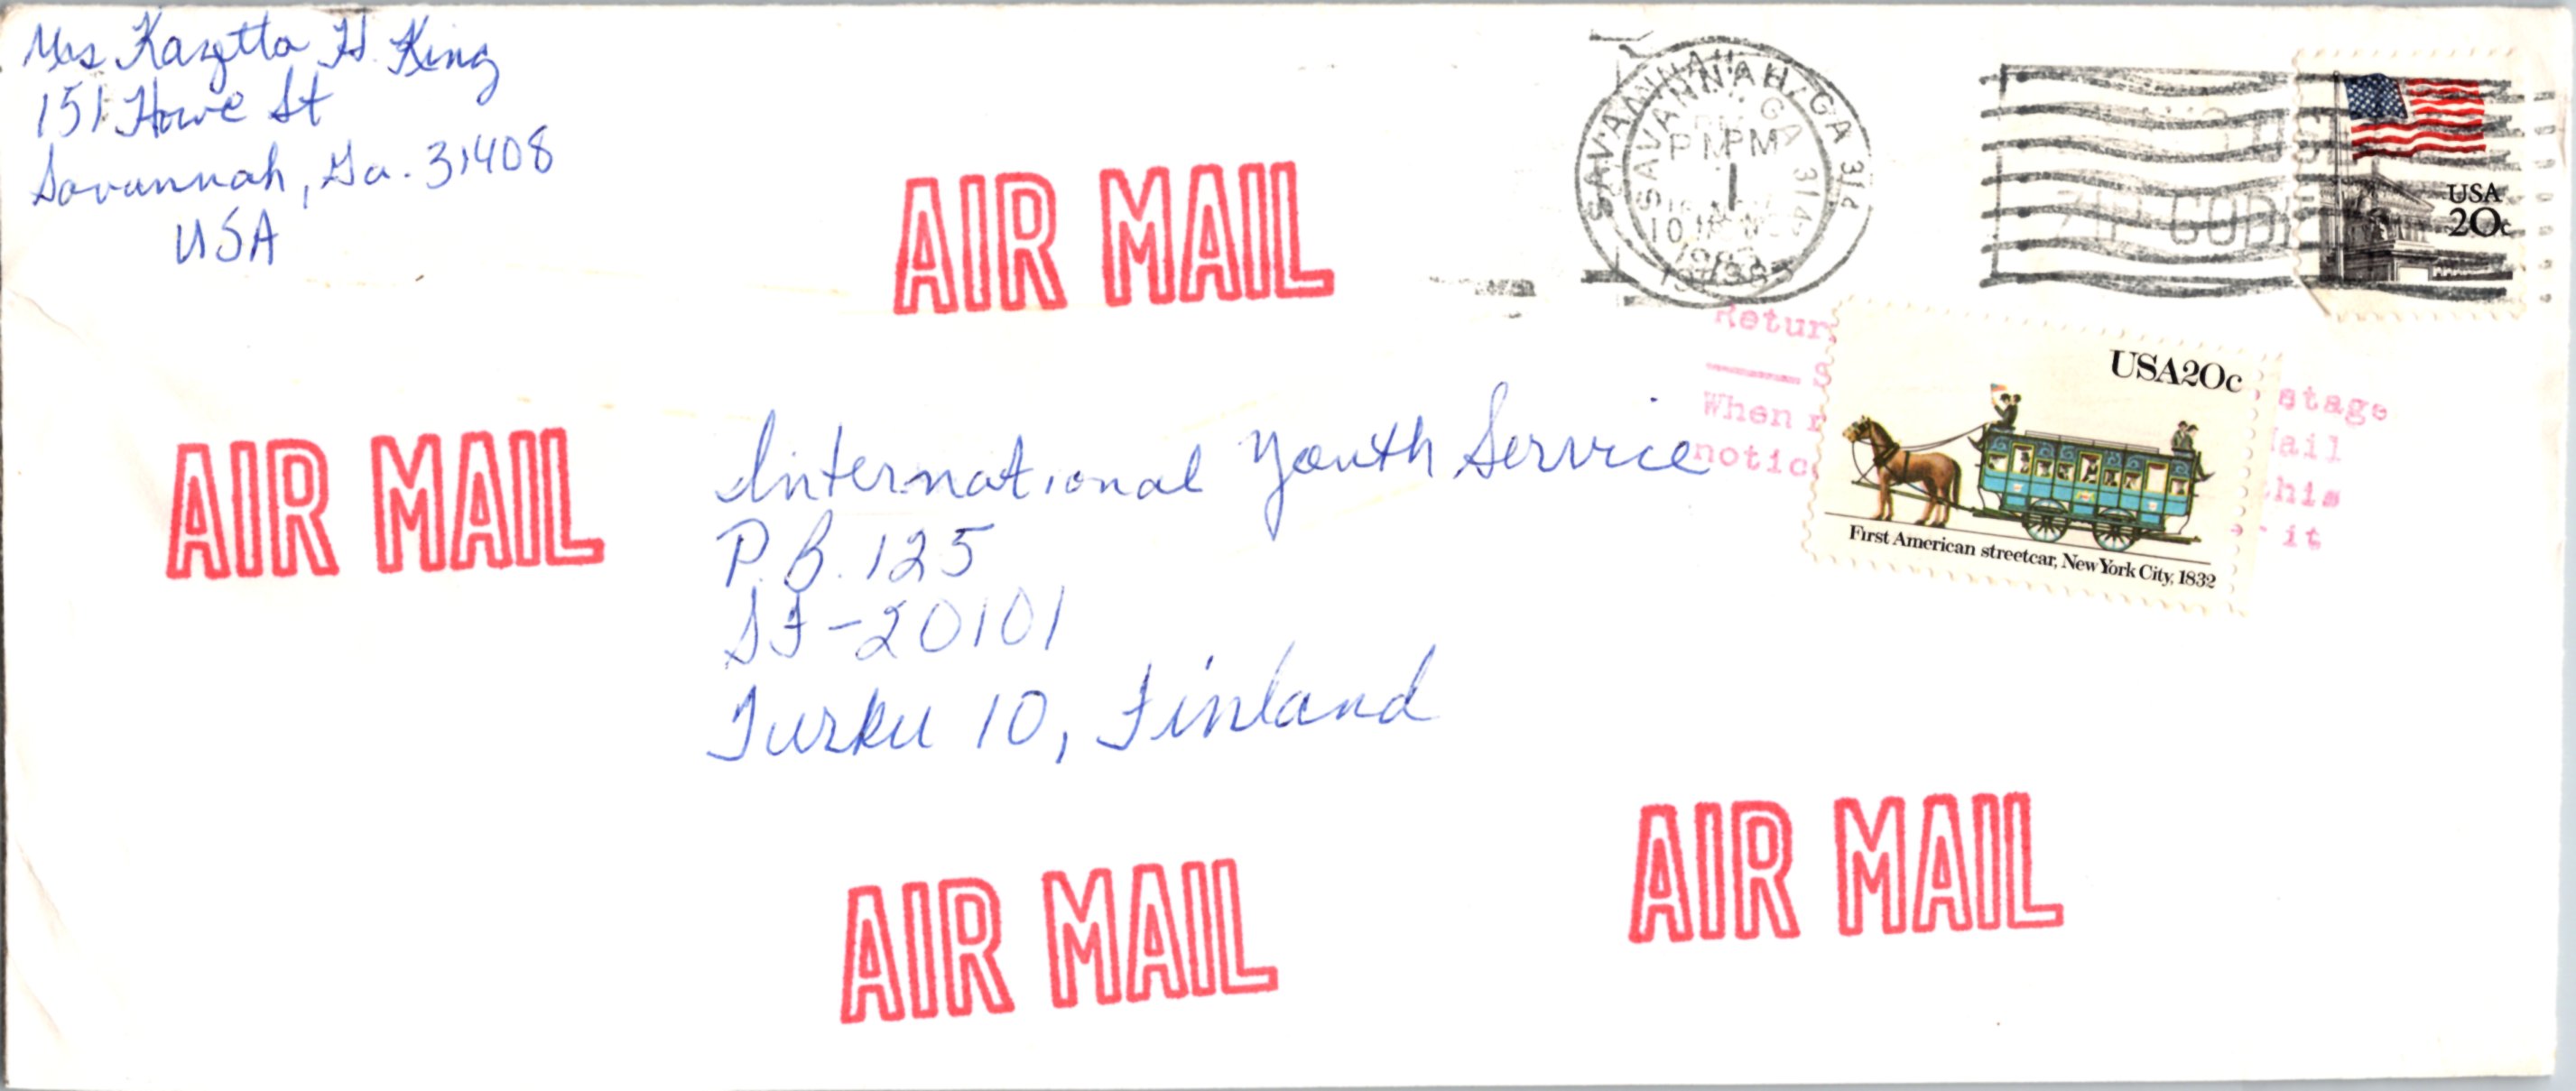 Mrs Kazetta H. King
151 Howe St
Savannah, Ga. 31408
USA
AIR MAIL
SAVANNAH, GA 314
SAVANNAH, GA 314
PM PM
1983
ZIP CODE
USA
20c
Retur
stage
When
ail
notic
his
it
USA20c
First American streetcar, New York City, 1832
AIR MAIL
International Youth Service
P.B. 125
SF-20101
Turku 10, Finland
AIR MAIL
AIR MAIL